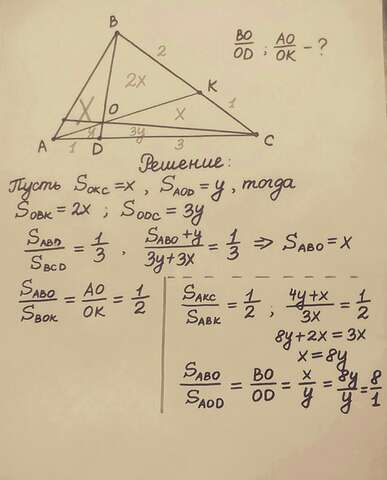 B
BO/OD ; AO/OK - ?
2
2x
K
X
O
x
1
y
3y
A
1
D
3
C
Решение:
Пусть S_OKC = x , S_AOD = y , тогда
S_OBK = 2x ; S_ODC = 3y
S_ABD/S_BCD = 1/3 , (S_ABO + y)/(3y + 3x) = 1/3 => S_ABO = x
S_ABO/S_BOK = AO/OK = 1/2
S_AKC/S_ABK = 1/2 ; (4y + x)/3x = 1/2
8y + 2x = 3x
x = 8y
S_ABO/S_AOD = BO/OD = x/y = 8y/y = 8/1